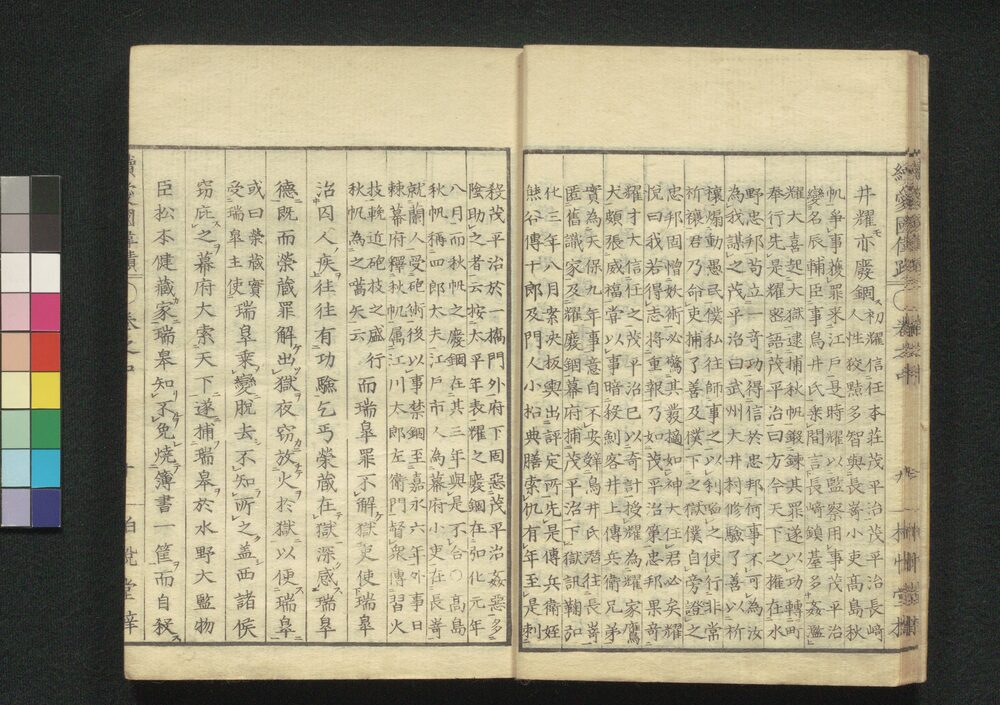 井耀亦廢錮初耀信任本莊茂平治茂平治長崎
人性狡黠多智與長嵜小吏高島秋
帆爭事獲罪来江戶是時耀以監察用事茂平治
變名辰輔臣事鳥井氏乘間言長崎鎮臺多姦濫
耀大喜起大獄逮捕秋帆鍛鍊其罪遂以功轉町
奉行先是耀密語茂平治曰方今天下之權在水
野忠邦苟立一奇功得信於忠邦何事不可為汝
為我謀之茂平治曰武州大井村修驗了善以祈
禳煽動愚民僕私往師事之以利啗之使行非常
祈禳君乃命吏捕了善及僕下之獄僕自旁證之
忠邦固憎妖術必驚其發擿如神大任君必矣耀
悅曰我若得志將重報乃如茂平治策忠邦果奇
耀才大信任之茂平治已以奇計授耀為耀家鷹
犬頗張威福當以事暗殺劍客井上傳兵衞兄弟
實為天保九年事意自不安辭鳥井氏潛往長嵜
匿舊識家及耀廢錮幕府捕茂平治下獄訊鞠弘
化三年八月案決板輿出評定所先是傳兵衞姪
熊谷傳十郎及門人小松典膳索仇有年至是刺
殺茂平治於一橋門外府下固惡茂平治姦惡多
陰助之者云按太平年表耀之廢錮在弘化元年
八月而秋帆之廢錮在其三年與是不合○高島
秋帆稱四郎大夫江戶市人為幕府小吏在長嵜
就蘭人受砲術後以事禁錮至嘉永六年外事日
棘幕府釋秋帆属江川大郎左衞門督衆傳習火
技輓近砲技之盛行
秋帆為之嚆矢云
而瑞皐罪不解獄吏使瑞皐
治囚人疾往往有功驗乞丐榮藏在獄深感瑞皐
德既而榮藏罪解出獄夜窃放火於獄以便瑞皐
或曰榮藏實
受瑞皐主使
瑞皐乘變脫去不知所之蓋西諸侯
窃庇之幕府大索天下遂捕瑞皐於水野大監物
臣松本健藏家瑞皐知不免燒簿書一筐而自殺